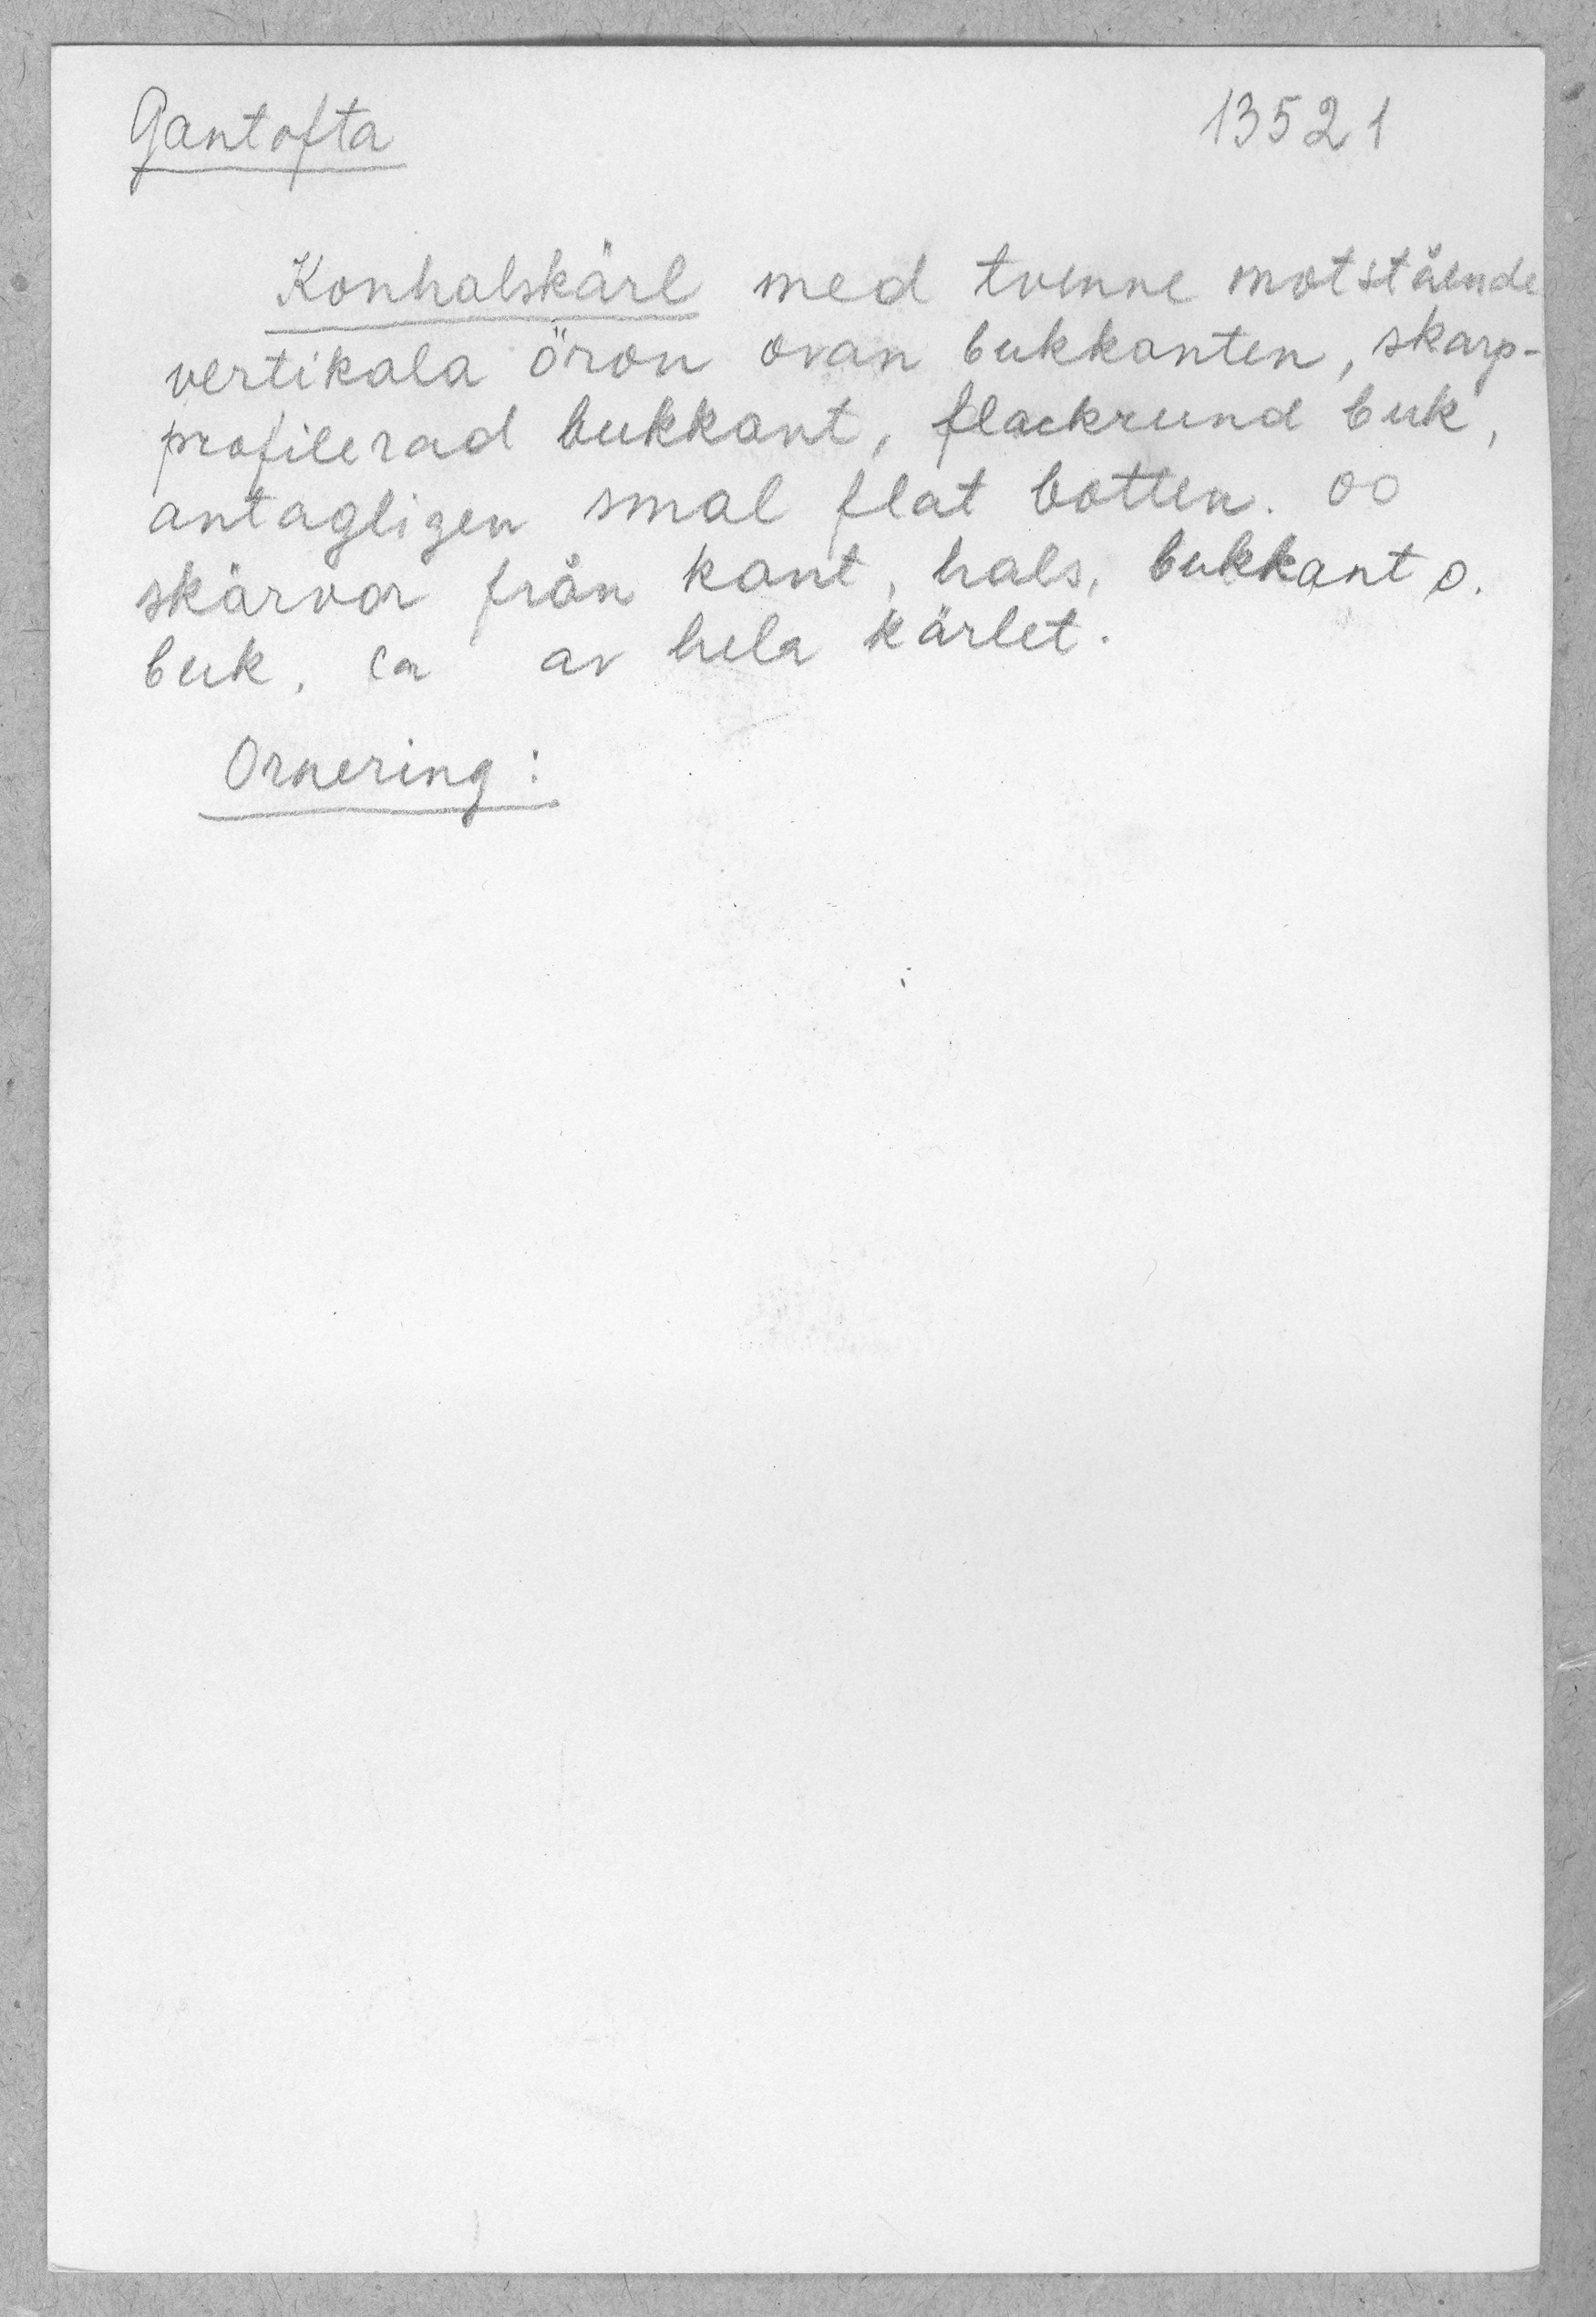 Gantofta 13521
Konhalskärl med tvenne motstående
vertikala öron ovan bukkanten, skarp-
profilerad bukkant, flackrund buk,
antagligen smal flat botten. 00
skärvor från kant, hals, bukkant o.
buk, ca av hela kärlet.
Ornering: